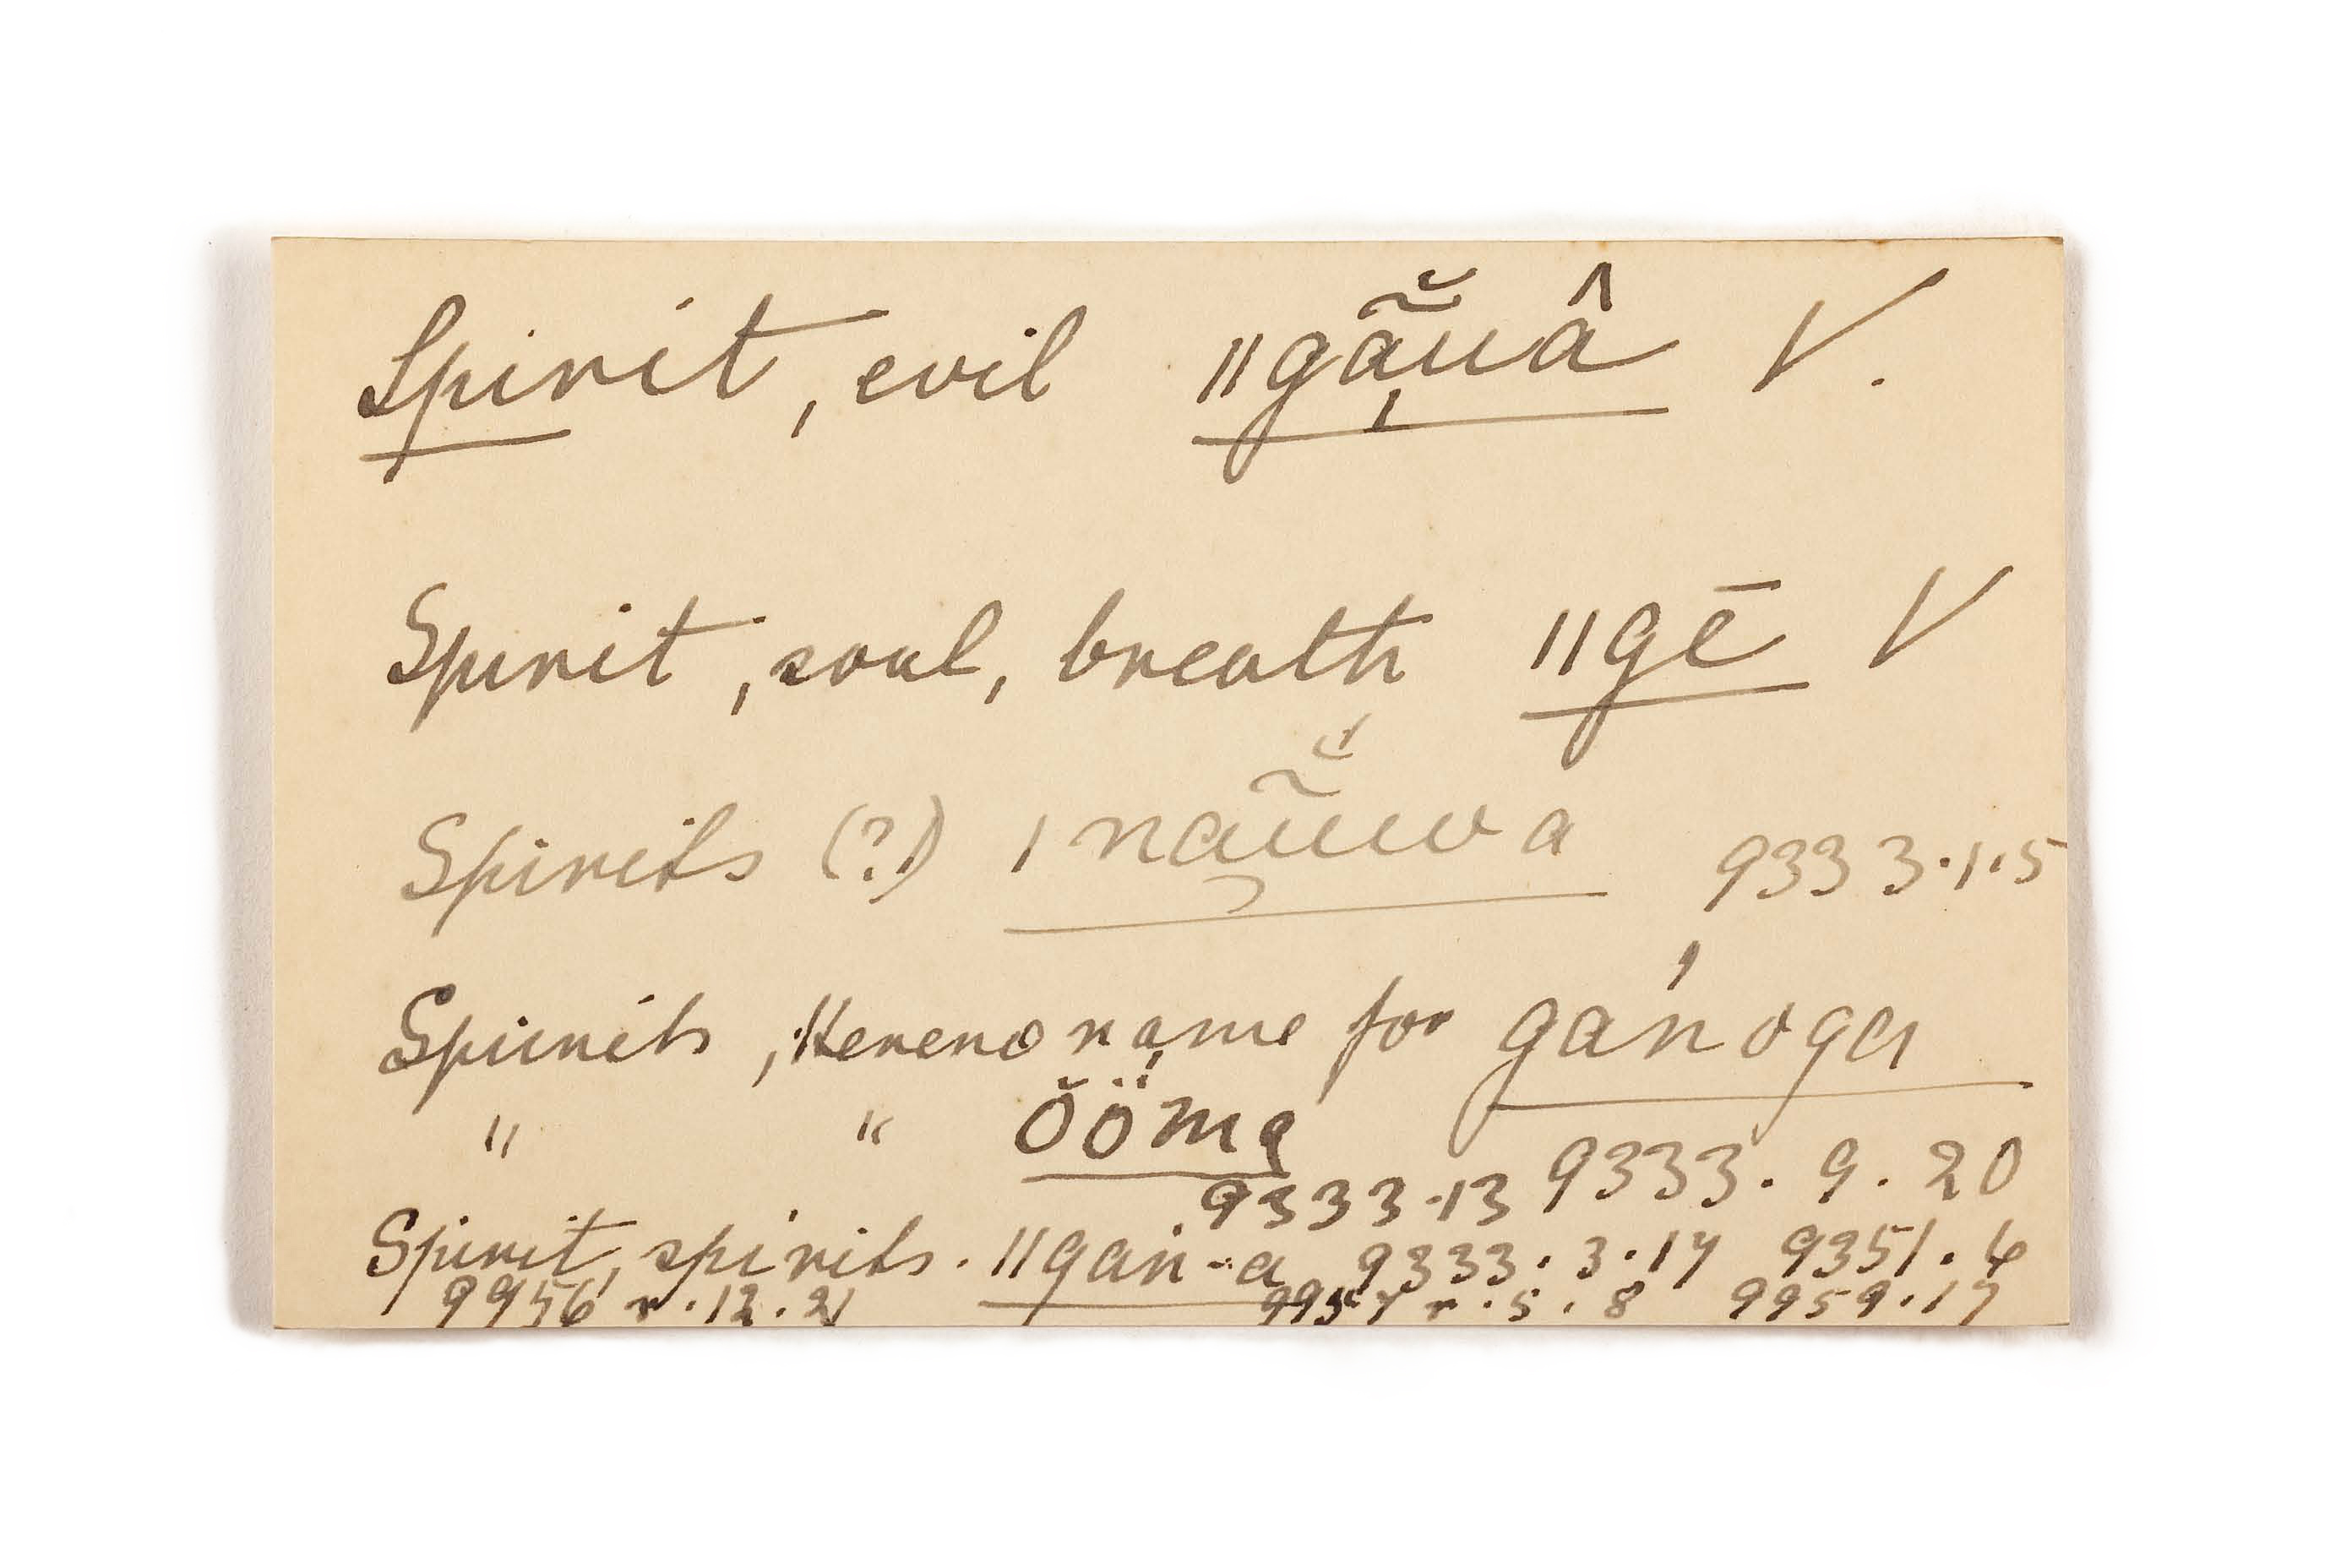 Spirit, evil ‖gã̬̆uâ V.
Spirit, soul, breath ‖gē V
Spirits (?) ǀnaũwa 9333.1.5
Spirits, Herero name for gánoga
" " ŏöma 9333.9.20
9333.13
Spirit, spirits. ‖gan-a 9333.3.17 9351.6
9956 r.12.21 9957 r.5.8 9959.17